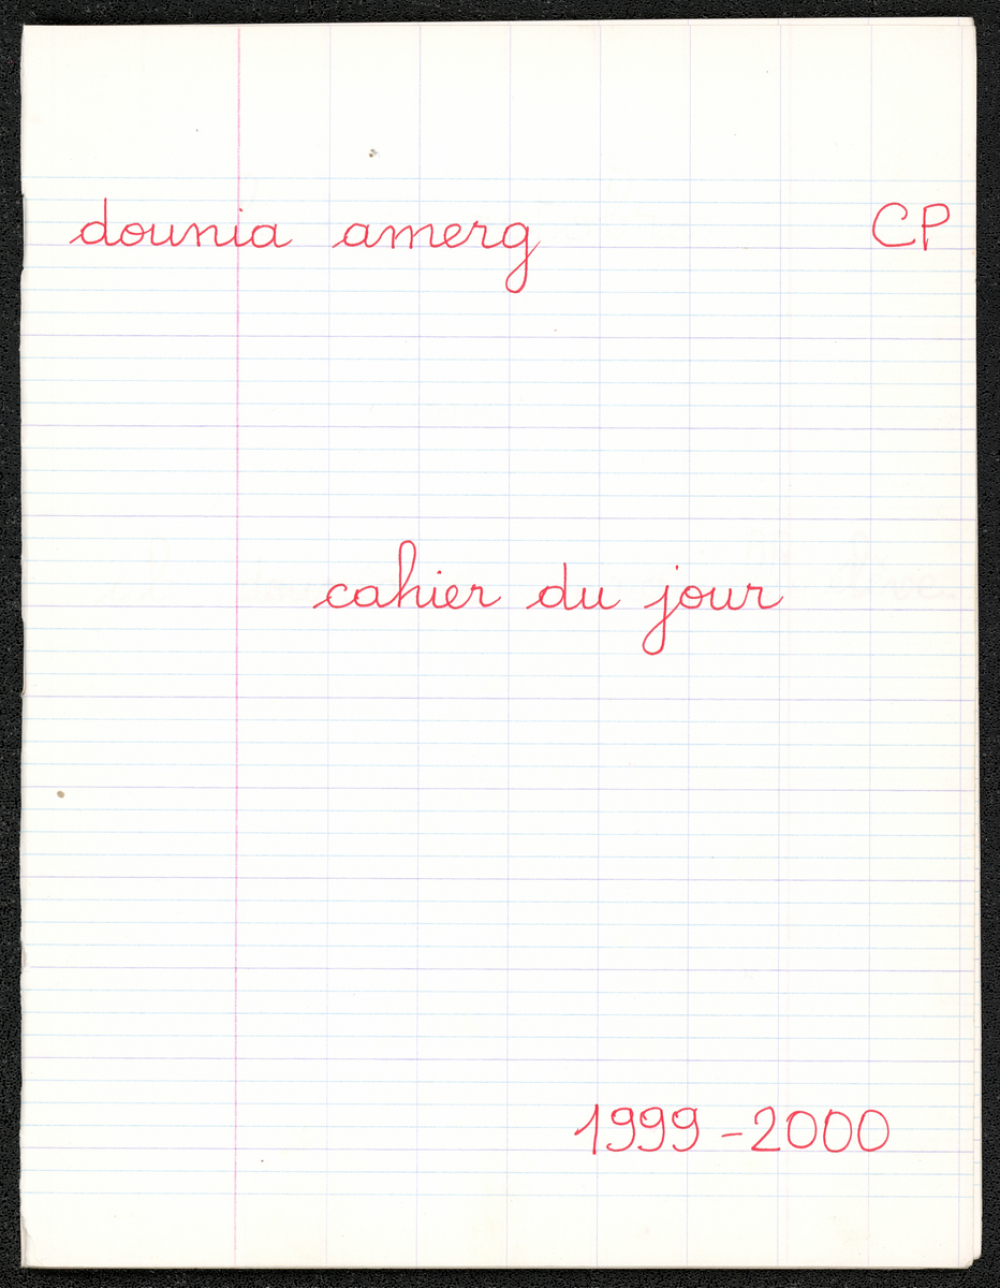 dounia amerg CP
cahier du jour
1999-2000